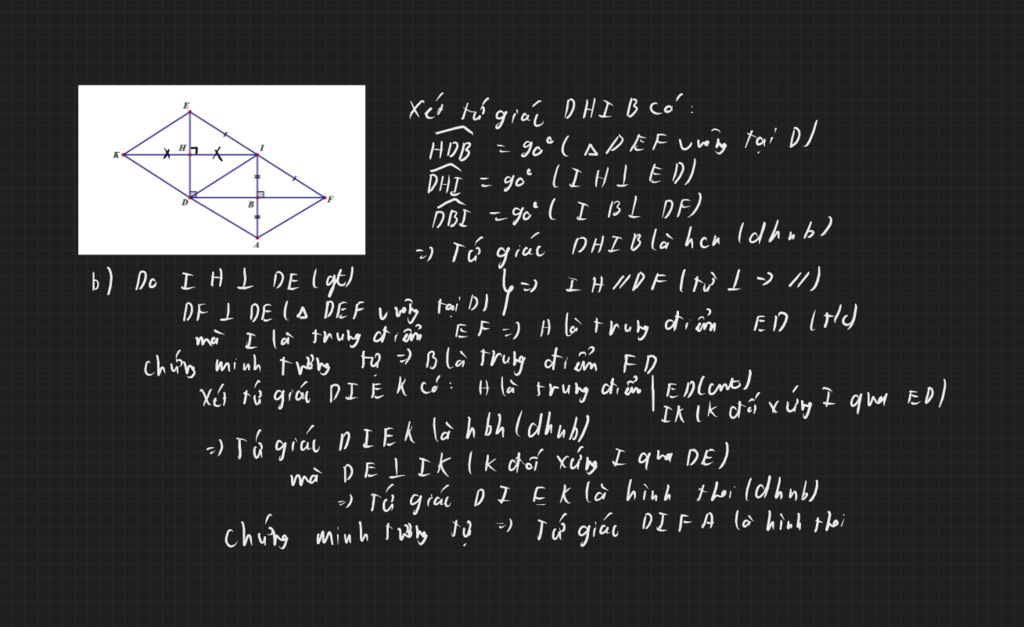 E
K
H
I
D
B
F
A
Xét tứ giác DHIB có:
HDB = 90° (△ DEF vuông tại D)
DHI = 90° (IH ⊥ ED)
DBI = 90° (IB ⊥ DF)
=> Tứ giác DHIB là hcn (dhnb)
b) Do IH ⊥ DE (gt)
DF ⊥ DE (△ DEF vuông tại D)
=> IH // DF (từ ⊥ -> //)
mà I là trung điểm EF => H là trung điểm ED (t/c)
Chứng minh tương tự => B là trung điểm FD
Xét tứ giác DIEK có: H là trung điểm
ED (cmt)
IK (K đối xứng I qua ED)
=> Tứ giác DIEK là hbh (dhnb)
mà DE ⊥ IK (K đối xứng I qua DE)
=> Tứ giác DIEK là hình thoi (dhnb)
Chứng minh tương tự => Tứ giác DIFA là hình thoi